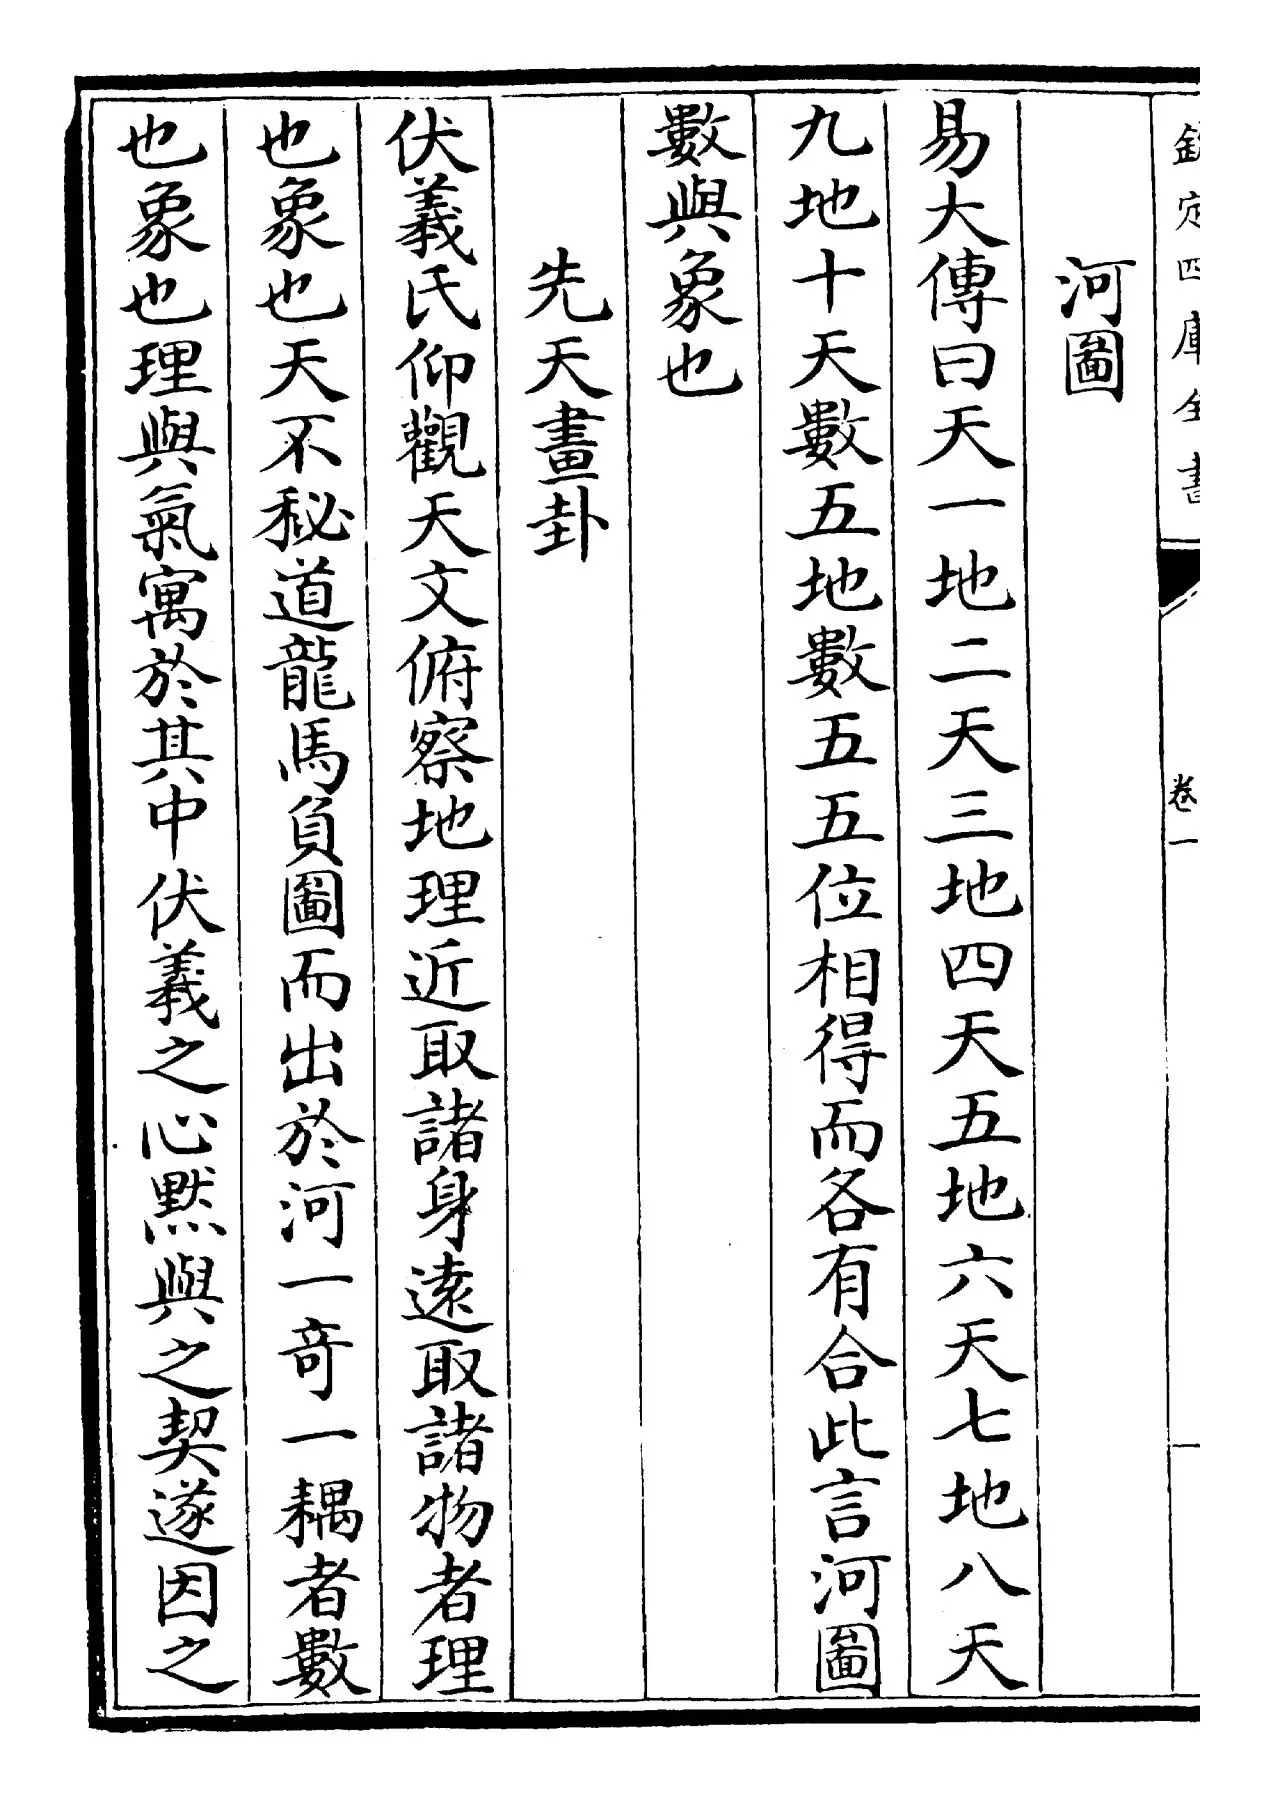 欽定四庫全書
卷一
一
河圖
易大傳曰天一地二天三地四天五地六天七地八天
九地十天數五地數五五位相得而各有合此言河圖
數與象也
先天畫卦
伏羲氏仰觀天文俯察地理近取諸身遠取諸物者理
也象也天不秘道龍馬負圖而出於河一奇一耦者數
也象也理與氣寓於其中伏羲之心黙與之契遂因之